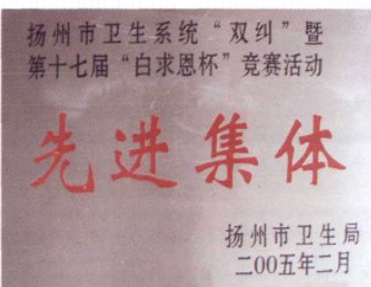 扬州市卫生系统“双纠”暨
第十七届“白求恩杯”竞赛活动
先进集体
扬州市卫生局
二00五年二月